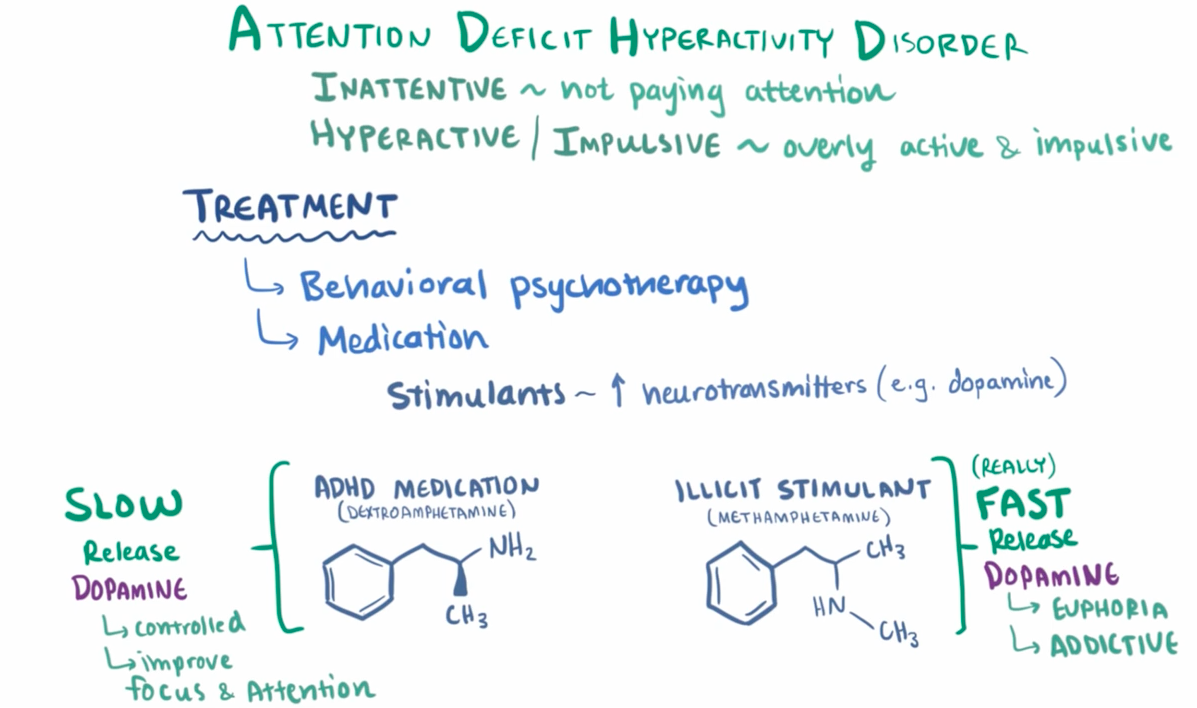 ATTENTION DEFICIT HYPERACTIVITY DISORDER
INATTENTIVE ~ not paying attention
HYPERACTIVE / IMPULSIVE ~ overly active & impulsive
TREATMENT
↳ Behavioral psychotherapy
↳ Medication
Stimulants ~ ↑ neurotransmitters (e.g. dopamine)
SLOW
Release
DOPAMINE
↳ controlled
↳ improve
focus & Attention
ADHD MEDICATION
(DEXTROAMPHETAMINE)
NH2
CH3
ILLICIT STIMULANT
(METHAMPHETAMINE)
CH3
HN
CH3
(REALLY)
FAST
Release
DOPAMINE
↳ EUPHORIA
↳ ADDICTIVE